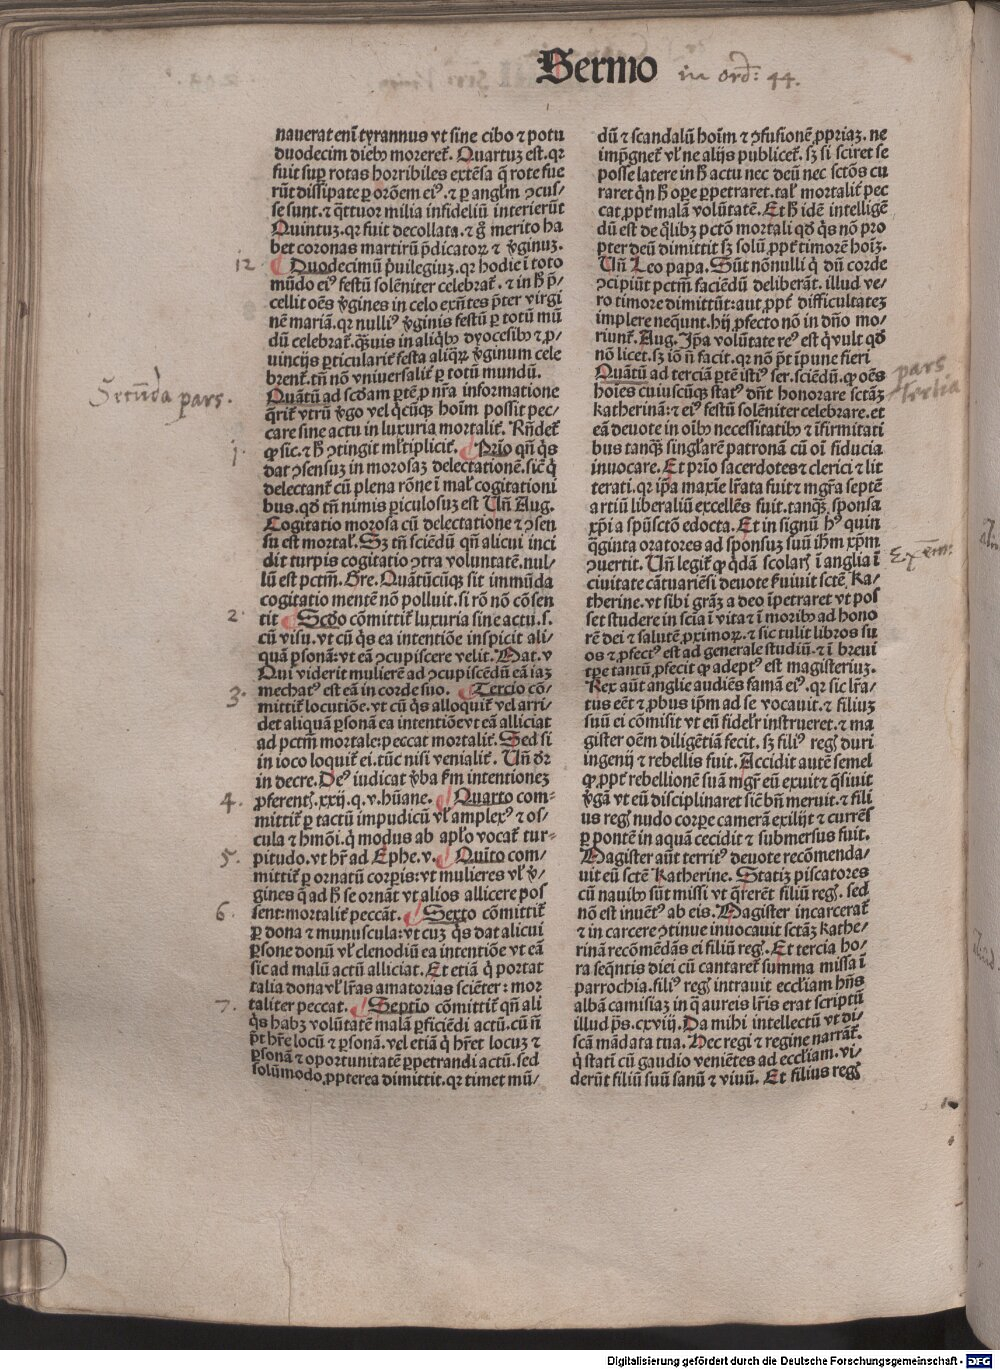 Sermo in ord: 44.
nauerat enī tyrannus vt sine cibo ⁊ potu
duodecim dieb⁹ moreret᷑. Quartuꝫ est. qꝛ
fuit suꝑ rotas horribiles extēsa q̄ rote fue
rūt dissipate ꝑ orōem ei⁹. ⁊ ꝑ angl̄m ꝯcus-
se sunt. ⁊ q̄ttuor milia infideliū interierūt
Quintuꝫ. qꝛ fuit decollata. ⁊ g̊ merito ha
bet coronas martirū p̄dicatoꝝ ⁊ v̄ginuꝫ.
12 ¶ Duodecimū p̄uilegiuꝫ. qꝛ hodie ī toto
mūdo ei⁹ festū solēniter celebrat᷑. ⁊ in h̄ p̄-
cellit oēs v̄gines in celo exn̄tes p̄ter virgi
nē mariā. qꝛ nulli⁹ v̄ginis festū ꝑ totū mū
dū celebrat᷑. q̄uis in aliqb⁹ dyocesib⁹ ⁊ ꝓ-
uincijs ꝑticularit᷑ festa aliq̄ꝝ v̄ginum cele
brent᷑. tn̄ nō vniuersalit᷑ ꝑ totū mundū.
Secūda pars.
Quātū ad scd̄am ꝑtē ꝓ nr̄a informatione
q̄rit᷑ vtrū v̄go vel q̄cūqꝫ hoīm possit pec-
care sine actu in luxuria mortalit᷑. Rn̄det᷑
ꝙ sic. ⁊ h̄ ꝯtingit ml̄tiplicit᷑. ¶ Prīo qn̄ q̇s
1.
dat ꝯsensuꝫ in morosaꝫ delectationē. sic̄ q̇
delectant᷑ cū plena rōne ī mal᷑ cogitationi
bus. qd̄ tn̄ nimis ꝑiculosuꝫ est Un̄ Aug.
Cogitatio morosa cū delectatione ⁊ ꝯsen
su est mortal᷑. Sꝫ tn̄ sciēdū qn̄ alicui inci
dit turpis cogitatio ꝯtra voluntatē. nul-
lū est pctm̄. Gre. Quātūcūqꝫ sit immūda
cogitatio mentē nō polluit. si rō nō cōsen
2. tit ¶ Scd̄o cōmittit᷑ luxuria sine actu. s.
cū visu. vt cū q̇s ea intentiōe inspicit ali-
quā ꝑsonā: vt eā ꝯcupiscere velit. Mat. v
Qui viderit mulierē ad ꝯcupiscēdū eā iaꝫ
3. mechat⁹ est eā in corde suo. ¶ Tercio cō-
mittit᷑ locutiōe. vt cū q̇s alloquit᷑ vel arri-
det aliquā ꝑsonā ea intentiōe vt eā alliciat
ad pctm̄ mortale: peccat mortalit᷑. Sed si
in ioco loquit᷑ ei. tūc nisi venialit᷑. Un̄ dr̄
in decre. De⁹ iudicat v̄ba ẜm intentioneꝫ
4. ꝓferentꝭ. xxij. q. v. hūane. ¶ Quarto com-
mittit᷑ ꝑ tactū impudicū vl᷑ amplex⁹ ⁊ os-
cula ⁊ hmōi. q̇ modus ab apl̄o vocat᷑ tur-
5. pitudo. vt hr̄ ad Ephe. v. ¶ Quīto com-
mittit᷑ ꝑ ornatū corꝑis: vt mulieres vl᷑ v̄-
gines q̄ ad h̄ se ornāt vt alios allicere pos
6. sent: mortalit᷑ peccāt. ¶ Sexto cōmittit᷑
ꝑ dona ⁊ munuscula: vt cuꝫ q̇s dat alicui
ꝑsone donū vl᷑ clenodiū ea intentiōe vt eā
sic ad malū actū alliciat. Et etiā q̇ portat
talia dona vl᷑ lr̄as amatorias sciēter: mor
7. taliter peccat. ¶ Septīo cōmittit᷑ qn̄ ali
q̇s habꝫ volūtatē malā ꝑficiēdi actū. cū n̄
p̄t hr̄e locū ⁊ ꝑsonā. vel etiā q̇ hr̄et locuꝫ ⁊
ꝑsonā ⁊ oportunitatē ꝑpetrandi actū. sed
solūmodo ꝓpterea dimittit. qꝛ timet mū-
dū ⁊ scandalū hoīm ⁊ ꝯfusionē ꝓpriaꝫ. ne
imp̄gnet᷑ vl᷑ ne alijs publicet᷑. sꝫ si sciret se
posse latere in h̄ actu nec deū nec sctōs cu
raret q̇n h̄ oꝑe ꝑpetraret. tal᷑ mortalit᷑ pec
cat ꝓpt᷑ malā volūtatē. Et h̄ idē intelligē
dū est de q̄libꝫ pctō mortali qd̄ q̇s nō pro
pter deū dimittit sꝫ solū ꝓpt᷑ timorē hoīꝫ.
Un̄ Leo papa. Sūt nōnulli q̇ dū corde
ꝯcipiūt pctm̄ faciēdū deliberāt. illud ve-
ro timore dimittūt: aut ꝓpt᷑ difficultateꝫ
implere neq̄unt. hij ꝓfecto nō in dn̄o mo-
riunt᷑. Aug. Ip̄a volūtate re⁹ est q̇ vult qd̄
nō licet. sꝫ iō n̄ facit. qꝛ nō p̄t īpune fieri
pars tertia
Quātū ad terciā ꝑtē isti⁹ ser. sciēdū. ꝙ oēs
hoīes cuiuscūqꝫ stat⁹ dn̄t honorare sctāꝫ
katherinā: ⁊ ei⁹ festū solēniter celebrare. et
eā deuote in oīb⁹ necessitatib⁹ ⁊ īfirmitati
bus tanqꝫ singl̄arē patronā cū oī fiducia
inuocare. Et prīo sacerdotes ⁊ clerici ⁊ lit
terati. qꝛ ip̄a maxīe lr̄ata fuit ⁊ mgr̄a septē
artiū liberaliū excellēs fuit. tanqꝫ sponsa
xp̄i a spūsctō edocta. Et in signū h⁹ quin
q̄ginta oratores ad sponsuꝫ suū ih̄m xp̄m
Exem:
ꝯuertit. Un̄ legit᷑ ꝙ qdā scolarꝭ ī anglia ī
ciuitate cātuariēsi deuote ẜuiuit sctē Ka-
therine. vt sibi grāꝫ a deo īpetraret vt pos
set studere in scia ī vita ⁊ ī morib⁹ ad hono
rē dei ⁊ salutē ꝓximoꝝ. ⁊ sic tulit libros su
os ⁊ ꝓfect⁹ est ad generale studiū. ⁊ ī breui
tꝑe tantū ꝓfecit ꝙ adept⁹ est magisteriuꝫ.
Rex aūt anglie audiēs famā ei⁹. qꝛ sic lr̄a-
tus eēt ⁊ ꝓbus ip̄m ad se vocauit. ⁊ filiuꝫ
suū ei cōmisit vt eū fidelr̄ instrueret. ⁊ ma
gister oēm diligētiā fecit. sꝫ fili⁹ regꝭ duri
ingenij ⁊ rebellis fuit. Accidit autē semel
ꝙ ꝓpt᷑ rebellionē suā mgr̄ eū exuit ⁊ q̄siuit
v̄gā vt eū disciplinaret sic̄ bn̄ meruit. ⁊ fili
us regꝭ nudo corꝑe camerā exilijt ⁊ currēs
ꝑ pontē in aquā cecidit ⁊ submersus fuit.
Magister aūt territ⁹ deuote recōmenda-
uit eū sctē katherine. Statiꝫ piscatores
cū nauib⁹ sūt missi vt q̄rerēt filiū regꝭ. sed
nō est inuēt⁹ ab eis. Magister incarcerat᷑
⁊ in carcere ꝯtinue inuocauit sctāꝫ kathe-
rinā recōmēdās ei filiū regꝭ. Et tercia ho-
ra seqn̄tis diei cū cantaret᷑ summa missa ī
parrochia. fili⁹ regꝭ intrauit eccl̄iam hn̄s
albā camisiaꝫ in q̄ aureis lr̄is erat scriptū
illud p̄s. cxviij. Da mihi intellectū vt di-
scā mādata tua. Hec regi ⁊ regine narrāt᷑.
q̇ statī cū gaudio veniētes ad eccl̄iam. vi-
derūt filiū suū sanū ⁊ viuū. Et filius regꝭ
Digitalisierung gefördert durch die Deutsche Forschungsgemeinschaft - DFG